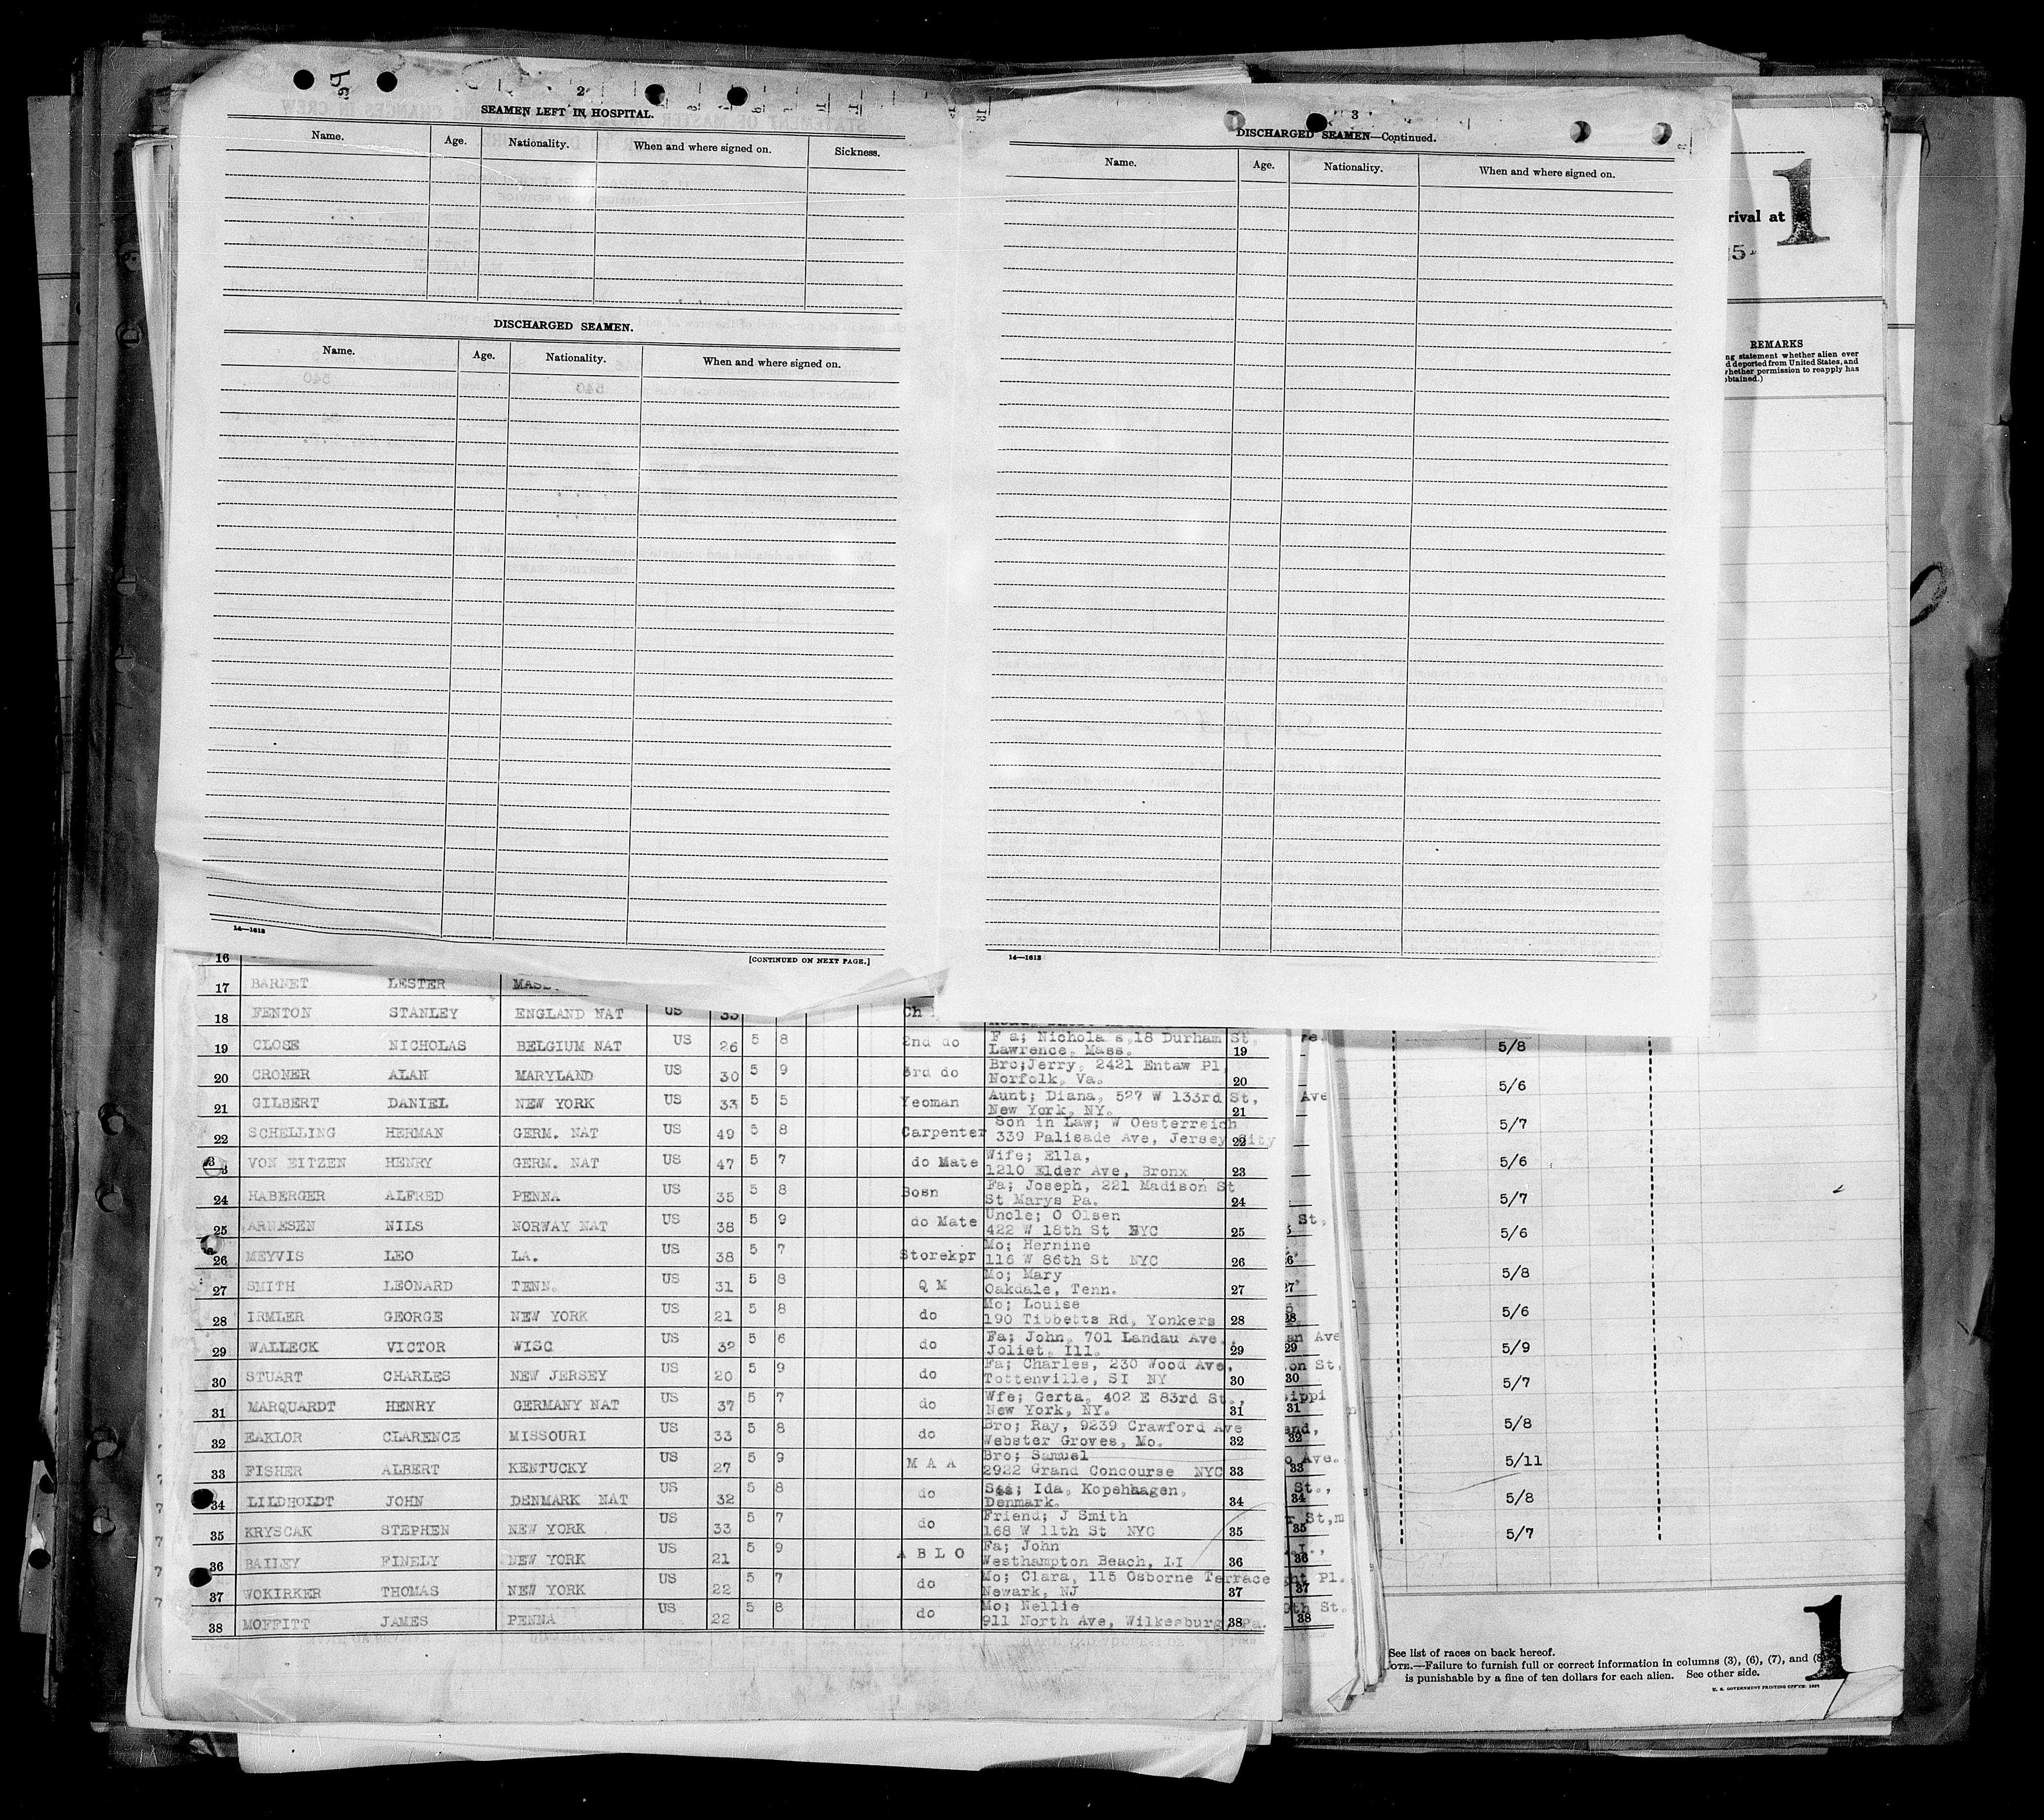 2
SEAMEN LEFT IN HOSPITAL.
Name. Age. Nationality. When and where signed on. Sickness.
DISCHARGED SEAMEN.
Name. Age. Nationality. When and where signed on.
14—1613
[CONTINUED ON NEXT PAGE.]
3
DISCHARGED SEAMEN—Continued.
Name. Age. Nationality. When and where signed on.
14—1613
rival at
1
REMARKS
ng statement whether alien ever
d deported from United States, and
whether permission to reapply has
obtained.)
16
17 BARNET LESTER
18 FENTON STANLEY ENGLAND NAT US 33 Ch
19 CLOSE NICHOLAS BELGIUM NAT US 26 5 8 2nd do Fa; Nicholas,18 Durham St, 19
Lawrence, Mass.
20 CRONER ALAN MARYLAND US 30 5 9 3rd do Bro;Jerry, 2421 Entaw Pl, 20
Norfolk, Va.
21 GILBERT DANIEL NEW YORK US 33 5 5 Yeoman Aunt; Diana, 527 W 133rd St, 21
New York, NY.
22 SCHELLING HERMAN GERM. NAT US 49 5 8 Carpenter Son in Law; W Oesterreich 22
339 Palisade Ave, Jersey City
VON EITZEN HENRY GERM. NAT US 47 5 7 do Mate Wife; Ella, 23
1210 Elder Ave, Bronx
24 HABERGER ALFRED PENNA US 35 5 8 Bosn Fa; Joseph, 221 Madison St 24
St Marys Pa.
25 ARNESEN NILS NORWAY NAT US 38 5 9 do Mate Uncle; O Olsen 25
422 W 18th St NYC
26 MEYVIS LEO LA. US 38 5 7 Storekpr Mo; Hernine 26
116 W 86th St NYC
27 SMITH LEONARD TENN. US 31 5 8 Q M Mo; Mary 27
Oakdale, Tenn.
28 IRMLER GEORGE NEW YORK US 21 5 8 do Mo; Louise 28
190 Tibbetts Rd, Yonkers
29 WALLECK VICTOR WISC US 32 5 6 do Fa; John, 701 Landau Ave., 29
Joliet, Ill.
30 STUART CHARLES NEW JERSEY US 20 5 9 do Fa; Charles, 230 Wood Ave, 30
Tottenville, SI NY
31 MARQUARDT HENRY GERMANY NAT US 37 5 7 do Wfe; Gerta, 402 E 83rd St., 31
New York, NY.
32 EAKLOR CLARENCE MISSOURI US 33 5 8 do Bro; Ray, 9239 Crawford Ave 32
Webster Groves, Mo.
33 FISHER ALBERT KENTUCKY US 27 5 9 M A A Bro; Samuel 33
2922 Grand Concourse NYC
34 LILDHOLDT JOHN DENMARK NAT US 32 5 8 do Ida, Kopehhagen, 34
Denmark.
35 KRYSCAK STEPHEN NEW YORK US 33 5 7 do Friend; J Smith 35
168 W 11th St NYC
36 BAILEY FINELY NEW YORK US 21 5 9 A B L O Fa; John 36
Westhampton Beach, LI
37 WOKIRKER THOMAS NEW YORK US 22 5 7 do Mo; Clara, 115 Osborne Terrace 37
Newark, NJ
38 MOFFITT JAMES PENNA US 22 5 8 do Mo; Nellie 38
911 North Ave, Wilkesburg, Pa.
5/8
5/6
5/7
5/6
5/7
5/6
5/8
5/6
5/9
5/7
5/8
5/11
5/8
5/7
See list of races on back hereof.
NOTE.—Failure to furnish full or correct information in columns (3), (6), (7), and (8)
is punishable by a fine of ten dollars for each alien. See other side.
U. S. GOVERNMENT PRINTING OFFICE:
1